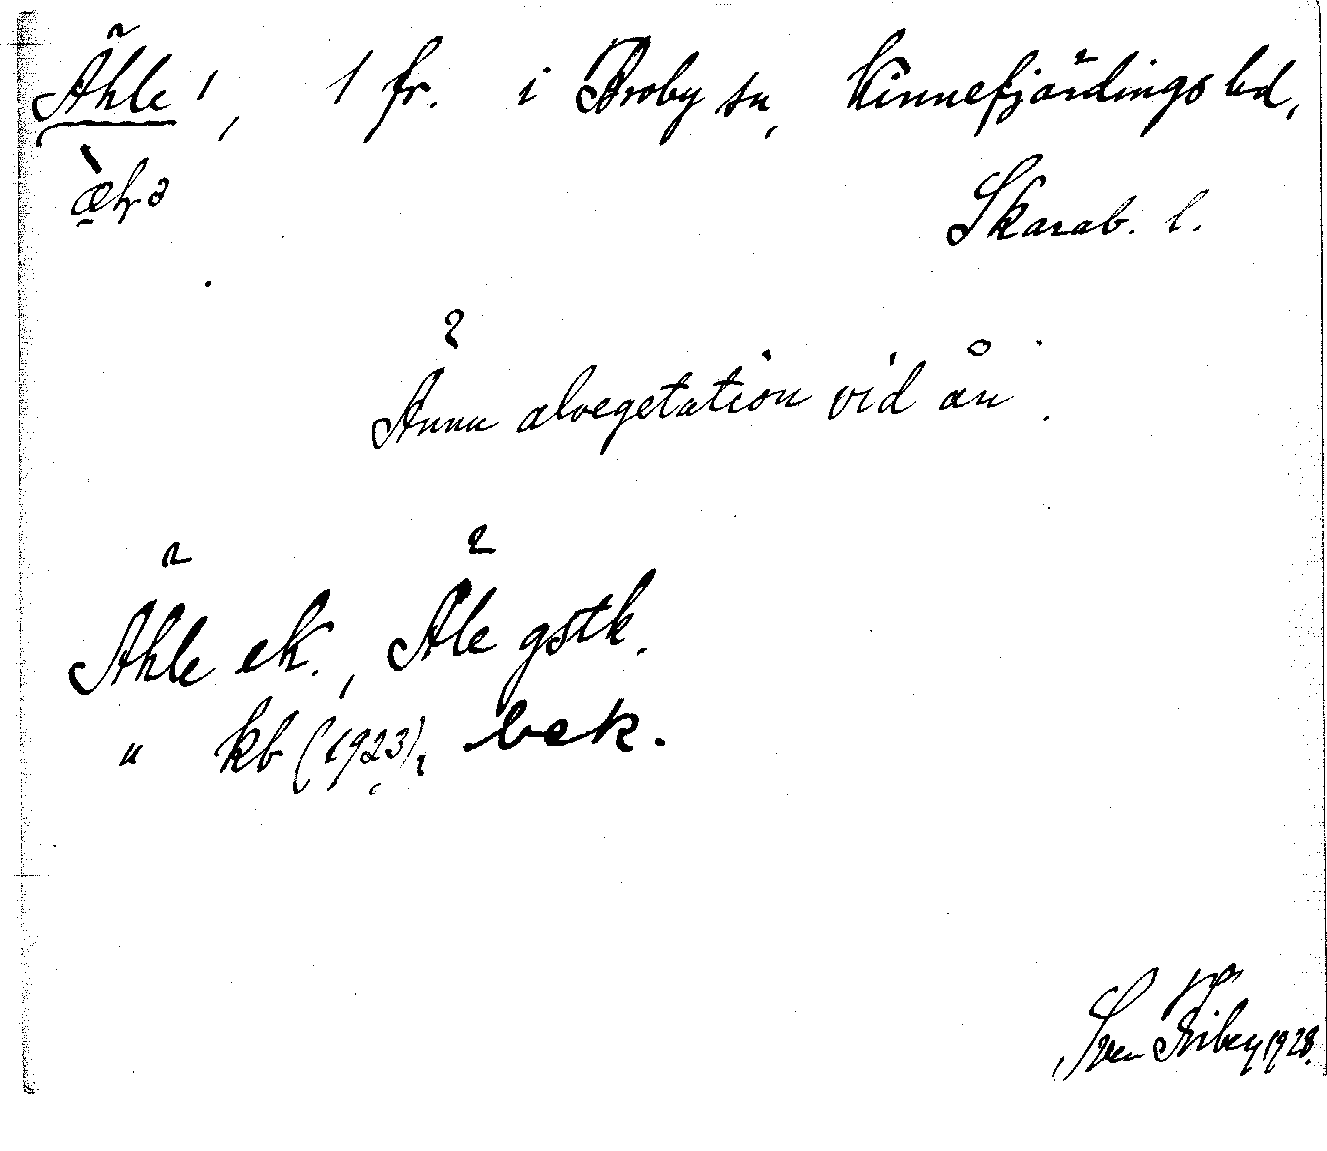 Åhle, 1 fr. i Broby sn, Kinnefjärdings hd,
Skarab. l.
Ännu alvegetation vid ån.
Åhle ek., Åle gstk.
" kb (1923), bek.
Sven Friberg 1928.